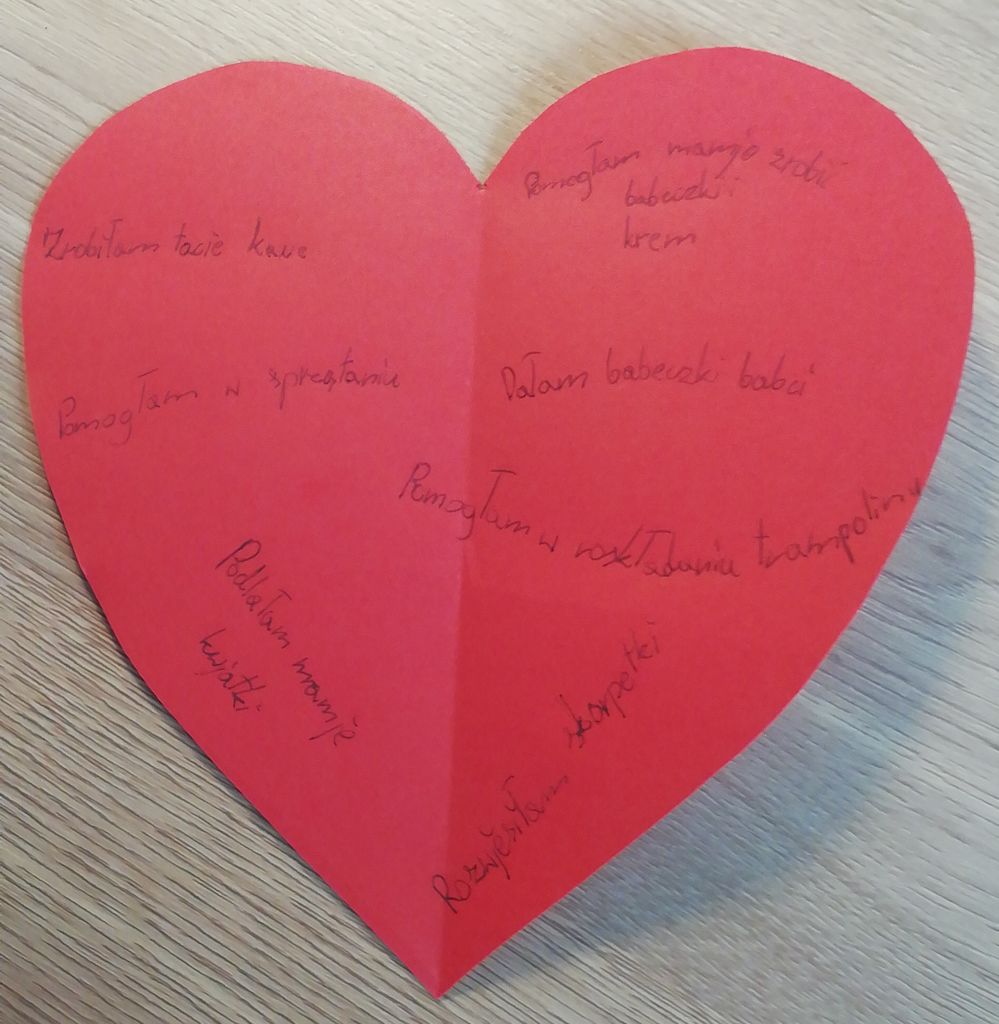 Zrobiłam tacie kawe
Pomogłam w sprzątaniu
Podlałam mamje
kwjatki
Pomogłam zrobić
babeczki i
krem
Dałam babeczki babci
Pomogłam w roskładaniu trampoliny
Rozwjesiłam skarpetki